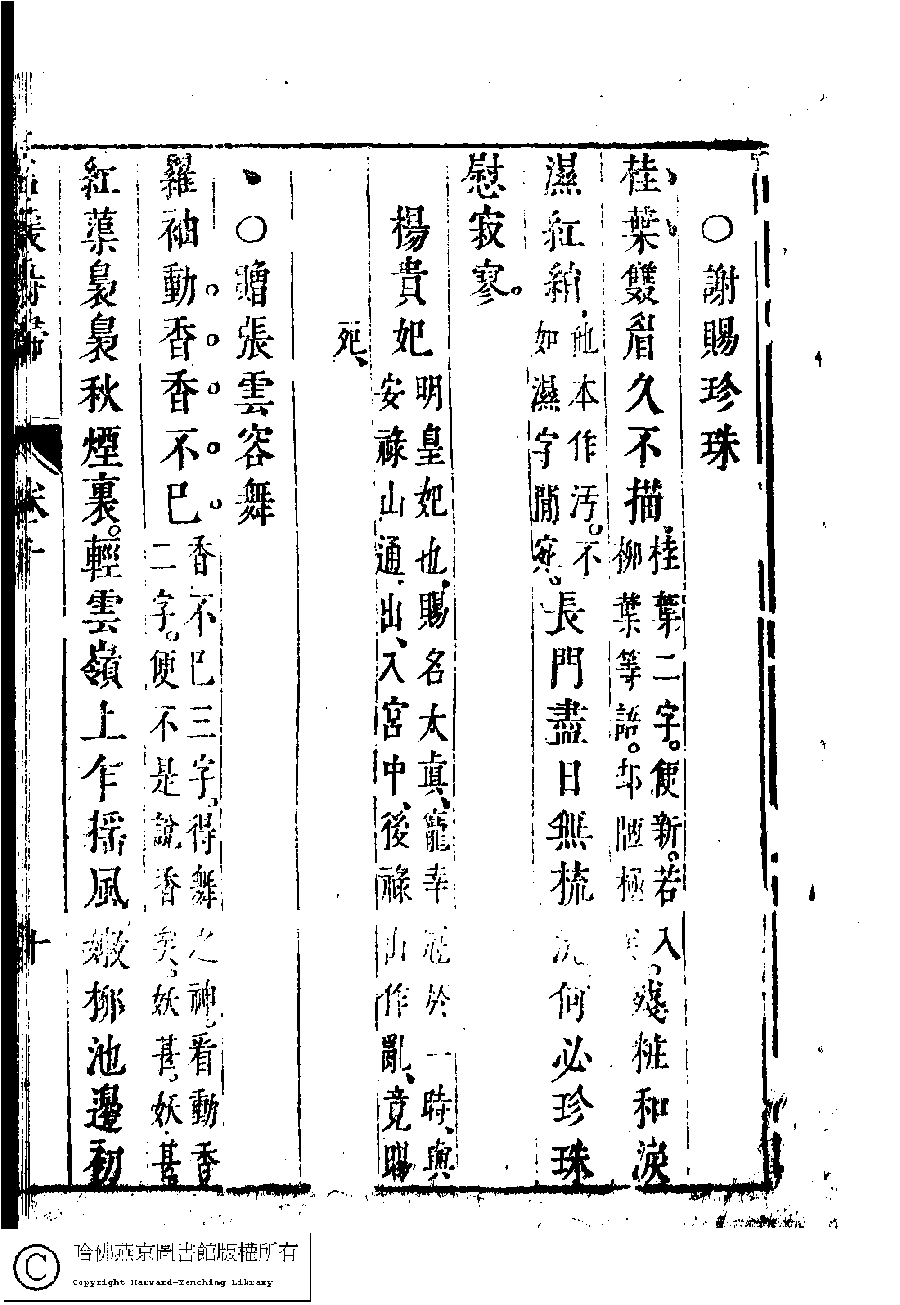 ○謝賜珍珠
桂葉雙眉久不描桂葉二字。便新。若入柳葉等語。却陋極矣。殘粧和淚
濕紅綃他本作汚。不如濕字閒寂。長門盡日無梳洗何必珍珠
慰寂寥。
楊貴妃明皇妃也、賜名太真、寵幸冠於一時、與安祿山通、出、入宮中、後祿山作亂、竟賜
死、
○贈張雲容舞
羅袖動香香不已香不已三字、得舞之神。看動香二字。便不是說香矣。妖甚。妖甚
紅蕖裊裊秋煙裏。輕雲嶺上乍搖風嫩柳池邊初
名媛詩歸
卷十
十
哈佛燕京圖書館版權所有
Copyright Harvard-Yenching Library